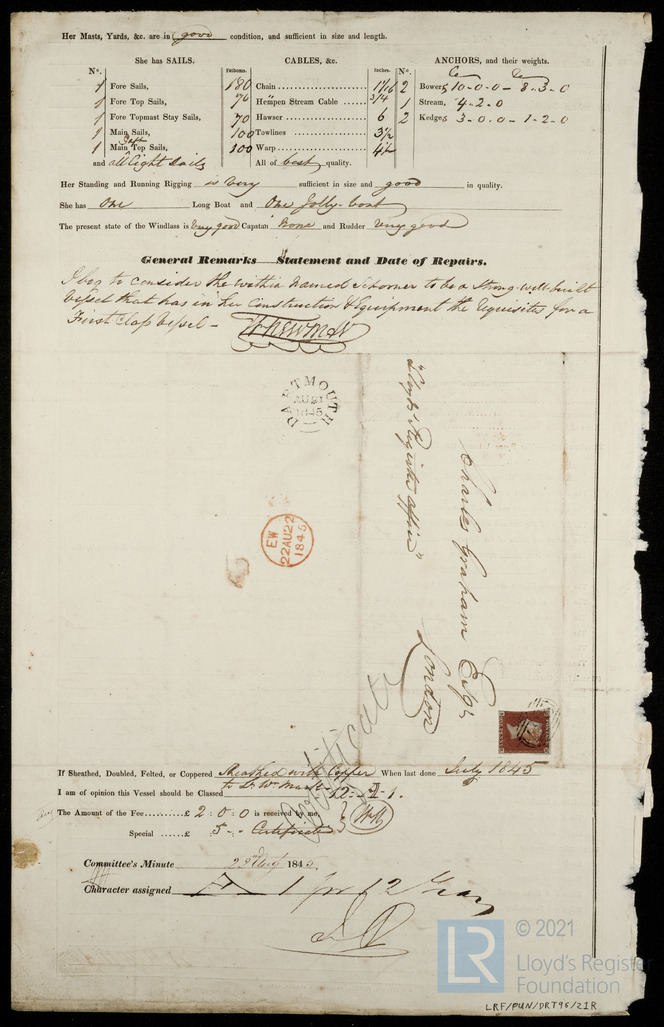 Her Masts, Yards, &c. are in good condition, and sufficient in size and length.
She has SAILS.
CABLES, &c.
ANCHORS, and their weights.
No.
Fathoms.
Inches.
No.
1 Fore Sails,
1 Fore Top Sails,
1 Fore Topmast Stay Sails,
1 Main Sails,
1 Main Top Sails,
and all light sails
180 Chain
70 Hempen Stream Cable 3/4
70 Hawser 6
100 Towlines 3½
100 Warp 4½
All of best quality.
2 Bowers 10-0-0 - 8-3-0
1 Stream, 4-2-0
2 Kedges 3-0-0 - 1-2-0
Her Standing and Running Rigging is very sufficient in size and good in quality.
She has One Long Boat and One Jolly-boat
The present state of the Windlass is very good Capstan None and Rudder very good
General Remarks Statement and Date of Repairs.
I beg to consider the within named Schooner to be a Strong well built
Vessel that has in her Construction & Equipment the requisites for a
First Class Vessel -
DARTMOUTH
AU 21
1845
EW
22 AU 22
1845
Charles Graham Esqr
"Lloyds Register Office"
London
Certificate
If Sheathed, Doubled, Felted, or Coppered Sheathed with Copper When last done July 1845
to Lt Wr Mark
I am of opinion this Vessel should be Classed 12 A 1.
The Amount of the Fee......£ 2 : 0 : 0 is received by me,
Special ......£ 5 - Certificate
Committee's Minute 184
Character assigned A 1 for 12 Years
© 2021
LR
Lloyd's Register
Foundation
LRF/PUN/DRT96/21R